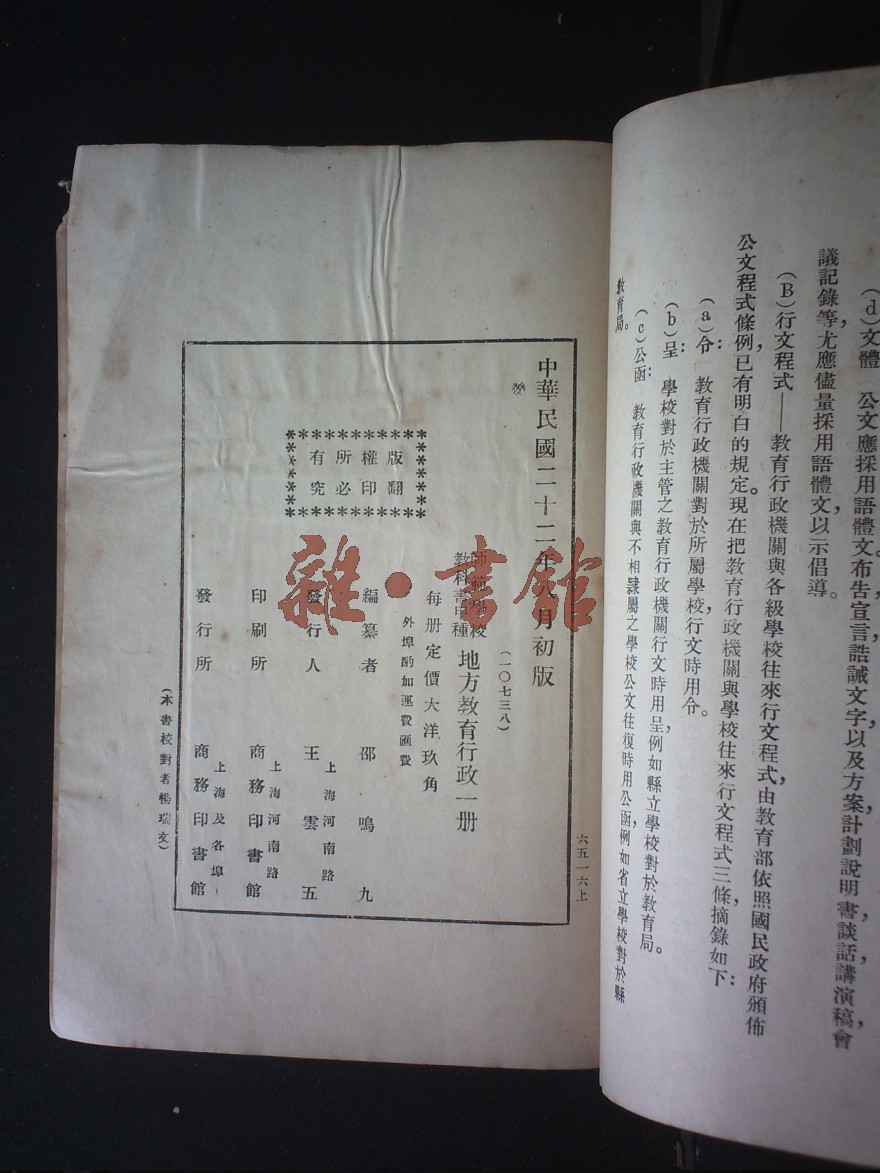 (d)文體　公文應採用語體文,布告宣言誥誡文字以及方案計劃說明書談話講演稿會
議記錄等,尤應儘量採用語體文,以示倡導。
(B)行文程式——教育行政機關與各級學校往來行文程式,由教育部依照國民政府頒佈
公文程式條例,已有明白的規定。現在把教育行政機關與學校往來行文程式三條,摘錄如下:
(a)令:　教育行政機關對於所屬學校,行文時用令。
(b)呈:　學校對於主管之教育行政機關行文時用呈,例如縣立學校對於教育局。
(c)公函:　教育行政機關與不相隸屬之學校公文往復時用公函,例如省立學校對於縣
教育局。
六五一六上
中華民國二十二年　月初版
(一〇七三八)
師範學校
教科書甲種
地方教育行政一册
每册定價大洋玖角
外埠酌加運費匯費
編纂者　邵鳴九
發行人　王雲五
上海河南路
印刷所　商務印書館
上海河南路
發行所　商務印書館
上海及各埠
版權所有
翻印必究
(本書校對者楊瑞文)
雜·書館